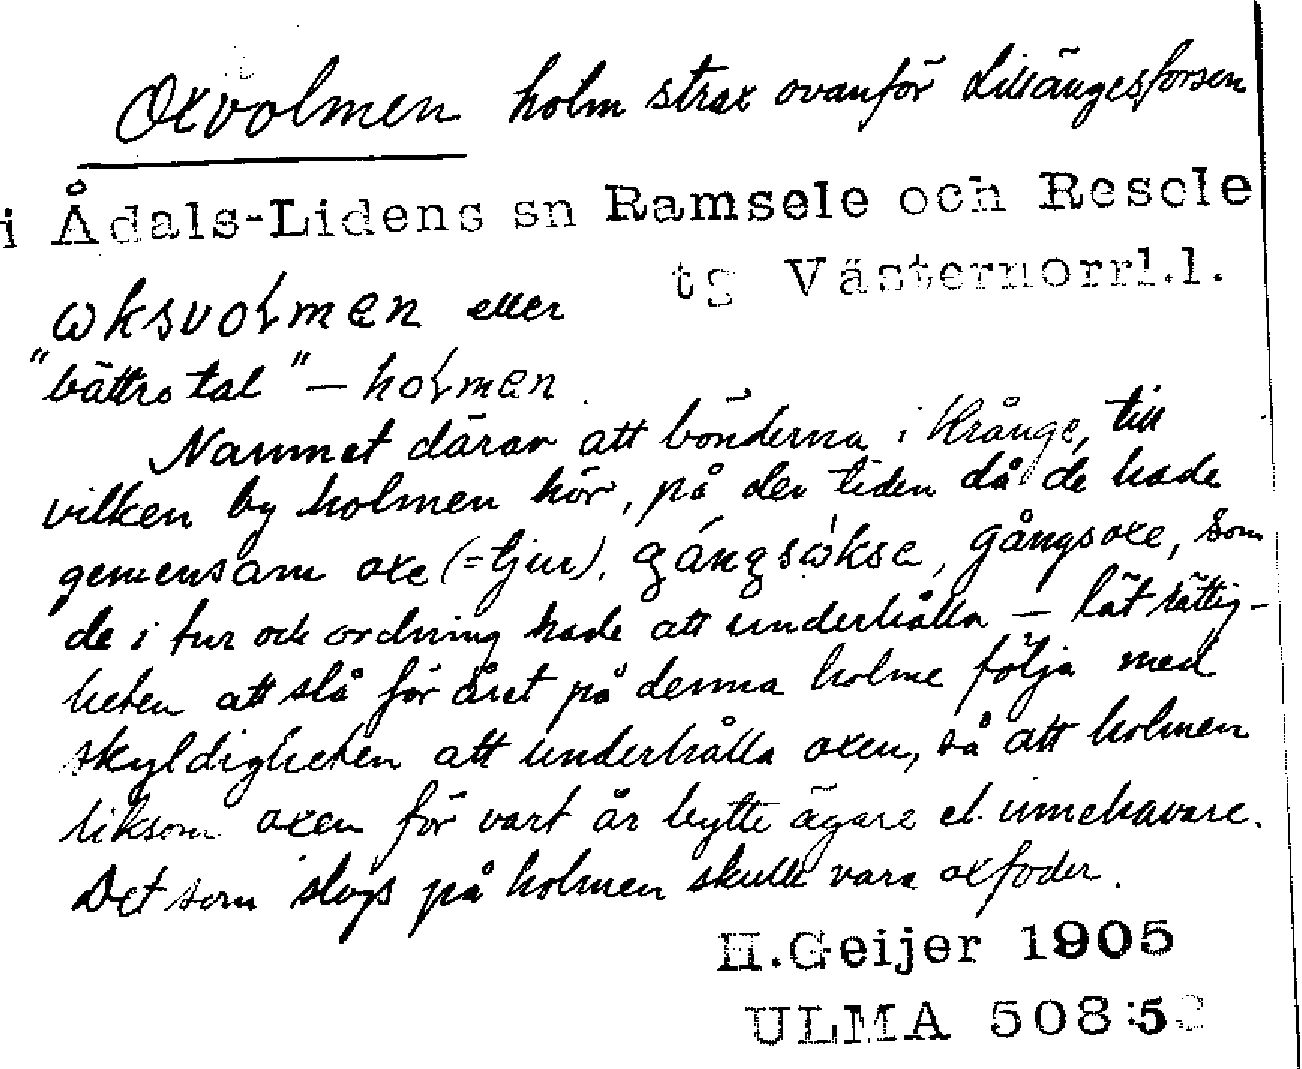 Oxvolmen holm strax ovanför Lillängesforsen
i Ådals-Lidens sn Ramsele och Resele
ts Västernorrl.l.
ωksvoɫmen eller
"bättre tal" — hoɫmen.
Namnet därav att bönderna i Krånge, till
vilken by holmen hör, på den tiden då de hade
gemensam oxe (= tjur), gångsωkse, gångsoxe, som
de i tur och ordning hade att underhålla — lät rättig-
heten att slå för året på denna holme följa med
skyldigheten att underhålla oxen, så att holmen
liksom oxen för vart år bytte ägare el. innehavare.
Det som slogs på holmen skulle vara oxfoder.
H.Geijer 1905
ULMA 508:5